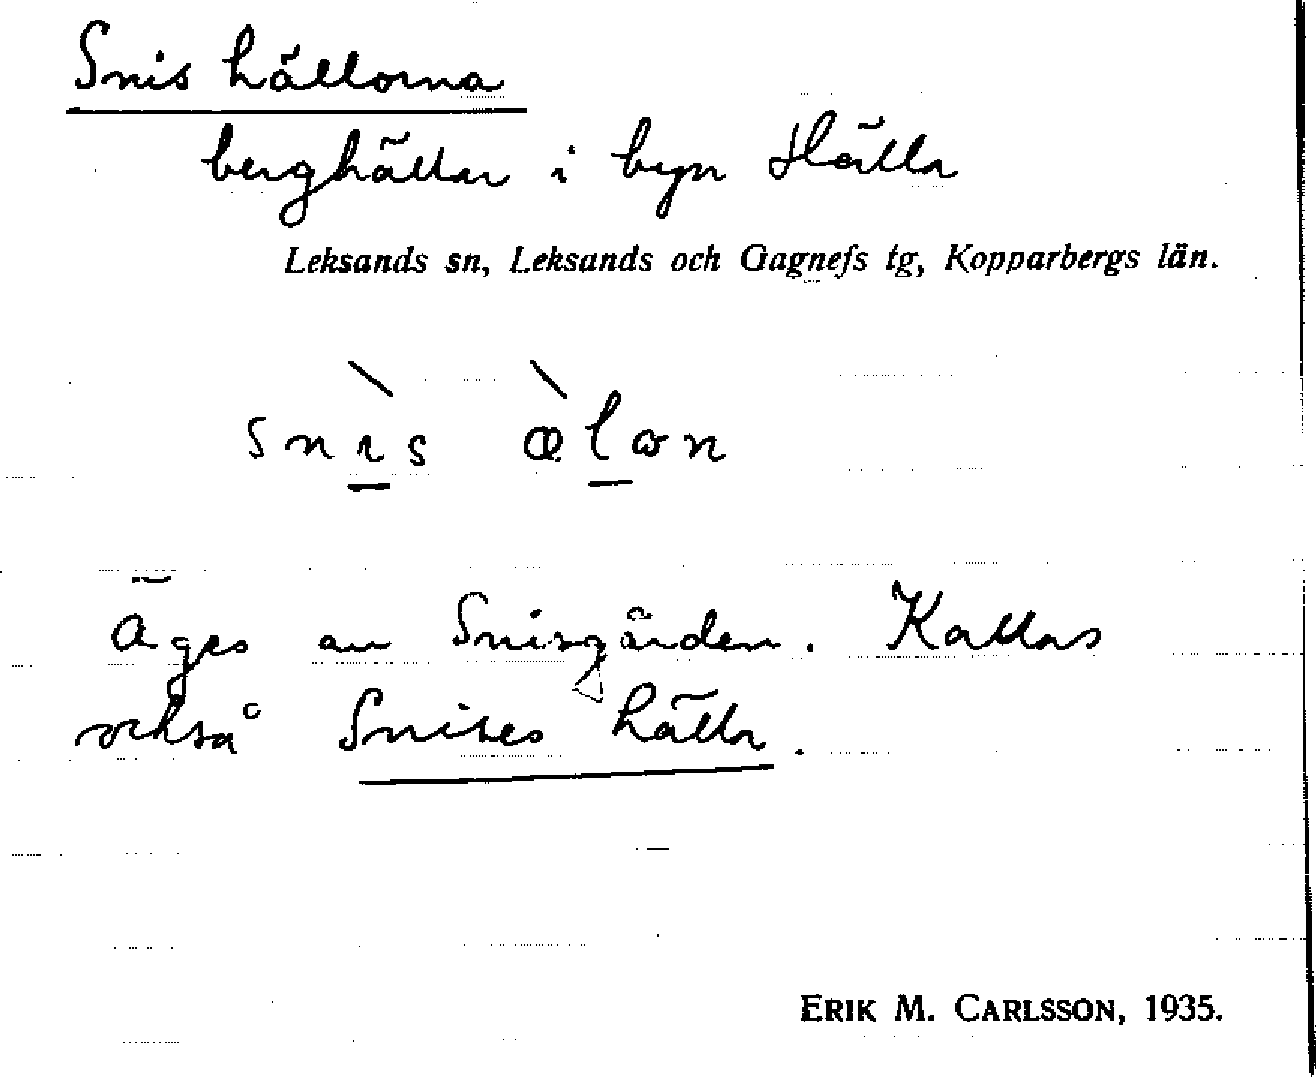 Snis hällorna
berghällar i byn Hälla
Leksands sn, Leksands och Gagnefs tg, Kopparbergs län.
snɩ̀s æ̀lon
Äges av Snisgården. Kallas
också Snises hälla.
ERIK M. CARLSSON, 1935.